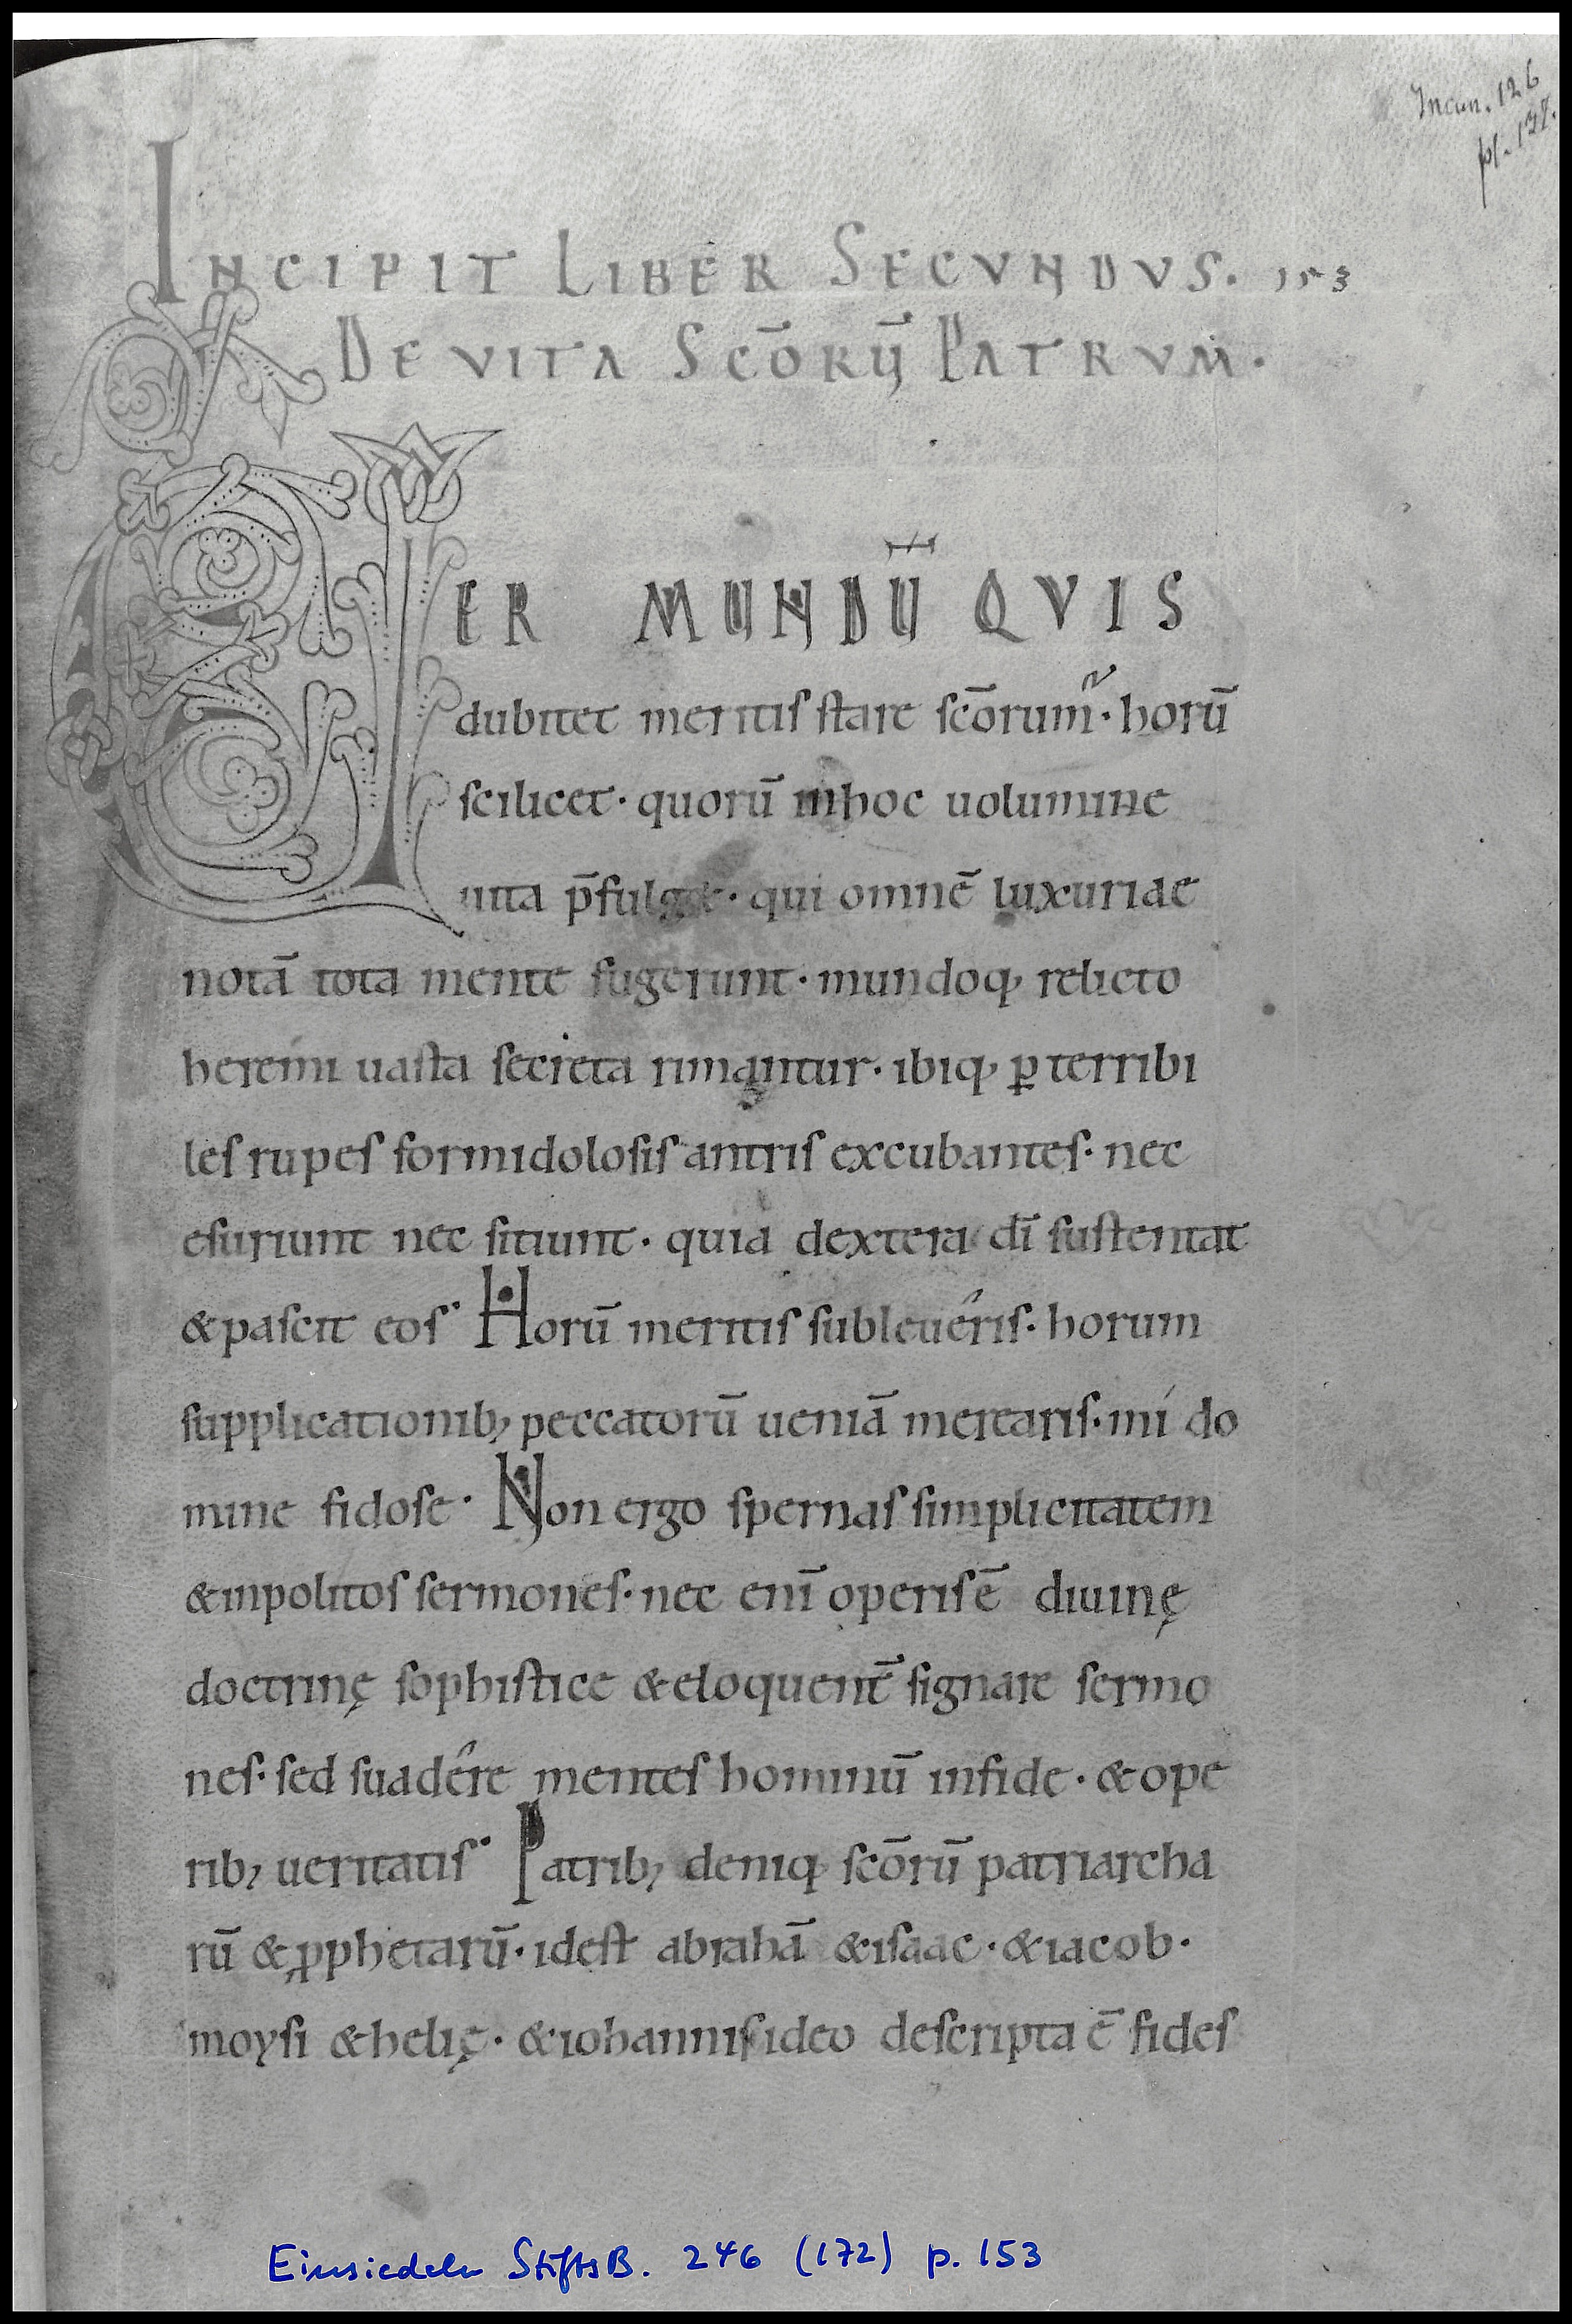 Incun. 126
INCIPIT LIBER SECVNDVS. 153
DE VITA SCŌRŪ PATRVM.
VER MUNDŪ QVIS
dubitet meritis stare scōrum· horū
scilicet· quorū inhoc uolumine
uita p̄fulget· qui omnē luxuriae
notā tota mente fugerunt· mundoq; relicto
heremi uasta secreta rimantur· ibiq; ꝑ terribi
les rupes formidolosis antris excubantes· nec
esuriunt nec sitiunt· quia dextera dī sustentat
& pascit eos· Horū meritis subleueris· horum
supplicationib; peccatorū ueniā merearis· mi do
mine fidose· Non ergo spernas simplicitatem
& inpolitos sermones· nec enī operis ē diuinę
doctrinę sophistice & eloquent̄ signare sermo
nes· sed suadere mentes hominū infide· & ope
rib; ueritatis· Patrib; deniq; scōrū patriarcha
rū & ꝓphetarū· idest abrahā & isaac· & iacob·
moysi & helię· & iohannis ideo descripta ē fides
Einsiedeln StiftsB. 246 (172) p. 153